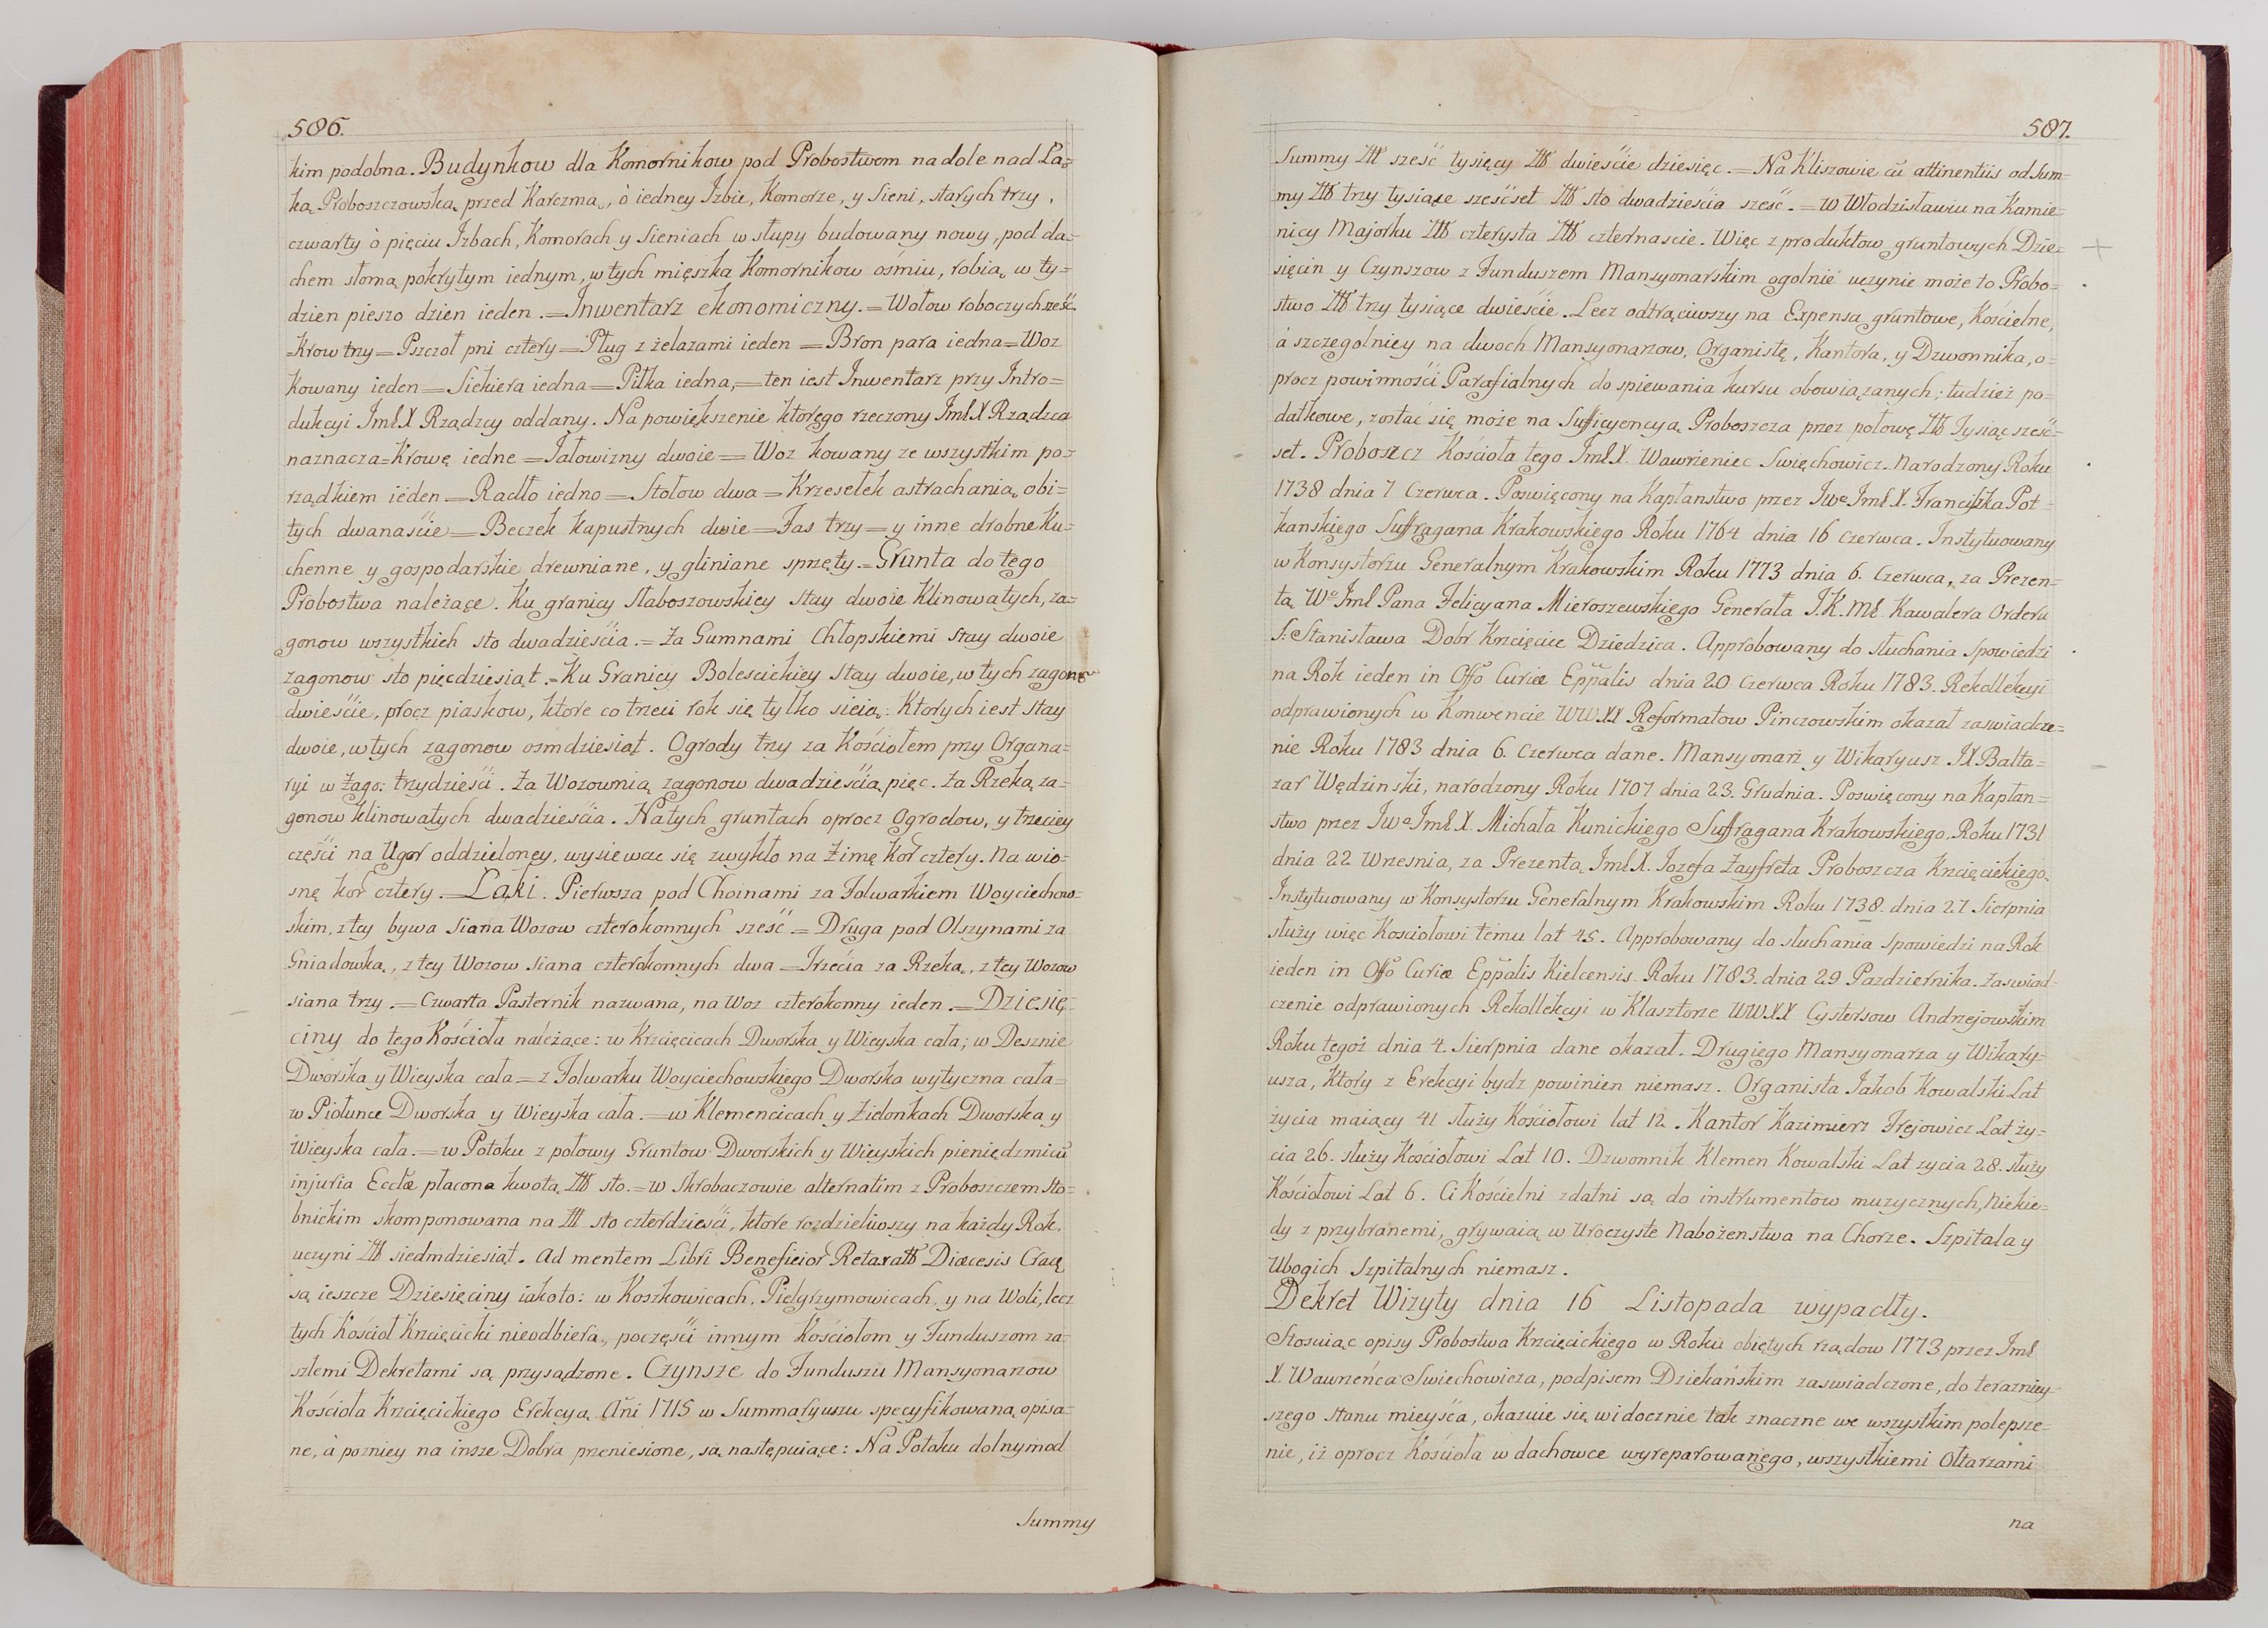 586.
kim podobna. Budynkow dla Komornikow pod Probostwem na dole nad Lą=
ką Proboszczowską przed Karczmą, ò iedney Izbie, Komorze, y Sieni, starych trzy,
czwarty ò pięciu Izbach, Komorach y Sieniach w słupy budowany nowy, pod da=
chem słomą pokrytym iednym, w tych mięszka Komornikow ośmiu, robią w ty=
dzien pieszo dzien ieden. = Inwentarz ekonomiczny. = Wołow roboczych sześć
= Krow trzy = Pszczoł pni cztery = Pług z żelazami ieden = Bron para iedna = Woz
Kowany ieden = Siekiera iedna = Piłka iedna, = ten iest Inwentarz przy Intro=
dukcyi Jmć X Rządzcy oddany. Na powiększenie ktorego rzeczony Jmć X Rządzca
naznacza = Krowę iedne = Jałowizny dwoie = Woz kowany ze wszystkim po=
rządkiem ieden = Radło iedno = Stołow dwa = Krzesełek astrachanią obi=
tych dwanaście = Beczek kapustnych dwie = Fas trzy = y inne drobne Ku=
chenne y gospodarskie drewniane, y gliniane sprzęty. = Grunta do tego
Probostwa należące. Ku granicy Słaboszowskiey Stay dwoie Klinowatych, za=
gonow wszystkich sto dwadzieścia. = Za Gumnami Chłopskiemi Stay dwoie
zagonow sto pięcdziesiąt. = Ku Granicy Bolescickiey Stay dwoie, w tych zagonow
dwieście, procz piaskow, ktore co trzeci rok się tylko sieią. Ktorych iest Stay
dwoie, w tych zagonow osmdziesiąt. Ogrody trzy za Kościołem przy Organa=
ryi w Zago: trzydzieści. Za Wozownią zagonow dwadzieścia pięc. Za Rzeką za=
gonow klinowatych dwadzieścia. Na tych gruntach oprocz Ogrodow, y trzeciey
części na Ugor oddzieloney, wysiewac się zwykło na Zimę Kor cztery. Na wio=
snę kor cztery. = Łąki. Pierwsza pod Choinami za Folwarkiem Woyciechow=
skim, z tey bywa Siana Wozow czterokonnych sześć. = Druga pod Olszynami za
Gniadowką, z tey Wozow siana czterokonnych dwa = Trzecia za Rzeką, z tey Wozow
siana trzy. = Czwarta Pasternik nazwana, na Woz czterokonny ieden. = Dziesię=
ciny do tego Kościoła należące: w Krzcięcicach Dworska y Wieyska cała; w Desznie
Dworska y Wieyska cała = z Folwarku Woyciechowskiego Dworska wytyczna cała =
w Piołunce Dworska y Wieyska cała. = w Klemencicach y Zielonkach Dworska y
Wieyska cała. = w Potoku z połowy Gruntow Dworskich y Wieyskich pieniędzmi cũ
injuria Eccłæ płacona kwotą Złł sto. = w Skrobaczowie alternatim z Proboszczem Sto=
bnickim skomponowana na Złł sto czterdzieści, ktore rozdzieliwszy na każdy Rok,
uczyni Złł siedmdziesiąt. Ad mentem Libri Beneficior Retaxatt Diæcesis Cracę
są ieszcze Dziesięciny iakoto: w Koszkowicach, Pielgrzymowicach, y na Woli, lecz
tych Kościoł Krzcięcicki nieodbiera, poczęści innym Kościołom y Funduszom za=
szłemi Dekretami są przysądzone. Czynsze do Funduszu Mansyonarzow
Kościoła Krzcięcickiego Erekcyą Añi 1715 w Summaryuszu specyfikowaną opisa=
ne, à pozniey na insze Dobra przeniesione, są następuiące: Na Potoku dolnym od
Summy
587.
Summy Złł sześć tysięcy Złł dwieście dziesięc. = Na Kliszowie cũ attinentiis od Sum=
my Złł trzy tysiące sześćset Złł sto dwadzieścia sześć. = W Włodzisławiu na Kamie=
nicy Majorku Złł czterysta Złł czternascie. Więc z produktow gruntowych Dzie=
sięcin y Czynszow z Funduszem Mansyonarskim ogolnie uczynie może to Probo=
stwo Złł trzy tysiące dwieście. Lecz odtrąciwszy na Expensa gruntowe, Kościelne,
à szczegolniey na dwoch Mansyonarzow, Organistę, Kantora, y Dzwonnika, o=
procz powinności Parafialnych do spiewania kursu obowiązanych; tudzież po=
datkowe, zostać się może na Sufficyencyą Proboszcza przez połowę Złł Tysiąc sześć=
set. Proboszcz Kościoła tego Jmć X. Wawrzeniec Swięchowicz. Narodzony Roku
1738 dnia 7 Czerwca. Poswięcony na Kapłanstwo przez Jwo Jmć X. Franciszka Pot=
kanskiego Suffragana Krakowskiego Roku 1764 dnia 16 Czerwca. Instytuowany
w Konsystorzu Generalnym Krakowskim Roku 1773 dnia 6. Czerwca, za Prezen=
tą Wo Jmć Pana Felicyana Mieroszewskiego Generała J.K.Mć Kawalera Orderu
S: Stanisława Dobr Krzcięcice Dziedzica. Approbowany do słuchania Spowiedzi
na Rok ieden in Offo Curiæ Eppalis dnia 20 Czerwca Roku 1783. Rekollekcyi
odprawionych w Konwencie WWXX Reformatow Pinczowskim okazał zaswiadcze=
nie Roku 1783 dnia 6. Czerwca dane. Mansyonarz y Wikaryusz JX Balta=
zar Wędzinski, narodzony Roku 1707 dnia 23. Grudnia. Poswięcony na Kapłan=
stwo przez Jwo Jmć X. Michała Kunickiego Suffragana Krakowskiego, Roku 1731
dnia 22 Wrzesnia, za Prezentą Jmć X. Iozefa Zayfreta Proboszcza Krzcięcickiego.
Instytuowany w Konsystorzu Generalnym Krakowskim Roku 1738. dnia 27 Sierpnia
służy więc Kościołowi temu lat 45. Approbowany do słuchania Spowiedzi na Rok
ieden in Offo Curiæ Eppalis Kielcensis Roku 1783. dnia 29 Pazdziernika. Zaswiad=
czenie odprawionych Rekollekcyi w Klasztorze WWXX Cystersow Andrzejowskim
Roku tegoż dnia 4. Sierpnia dane okazał. Drugiego Mansyonarza y Wikary=
usza, ktory z Erekcyi bydz powinien niemasz. Organista Iakob Kowalski Lat
życia maiący 41 służy Kościołowi lat 12. Kantor Kazimierz Frejowicz Lat ży=
cia 26. służy Kościołowi Lat 10. Dzwonnik Klemen Kowalski Lat zycia 28. służy
Kościołowi Lat 6. Ci Kościelni zdatni są do instrumentow muzycznych, Niekie=
dy z przybranemi, grywaią w Uroczyste Nabożenstwa na Chorze. Szpitala y
Ubogich Szpitalnych niemasz.
Dekret Wizyty dnia 16 Listopada wypadły.
Stosuiąc opisy Probostwa Krzcięcickiego w Roku obiętych rządow 1773 przez Jmć
X. Wawrzeńca Swiechowicza, podpisem Dziekańskim zaswiadczone, do terazniey=
szego stanu mieysca, okazuie się widocznie tak znaczne we wszystkim polepsze=
nie, iż oprocz Kościoła w dachowce wyreparowanego, wszystkiemi Ołtarzami
na